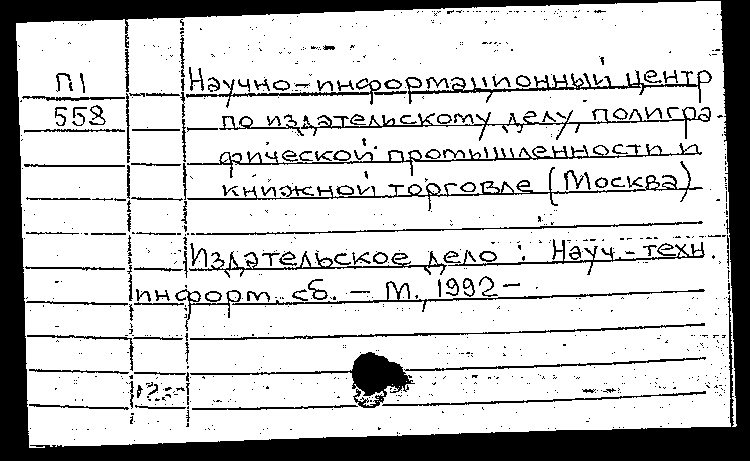 П1 Научно-информационный центр
558 по издательскому делу, полигра-
фической промышленности и
книжной торговле (Москва)
Издательское дело : Науч.-техн.
информ. сб. – М., 1992 –